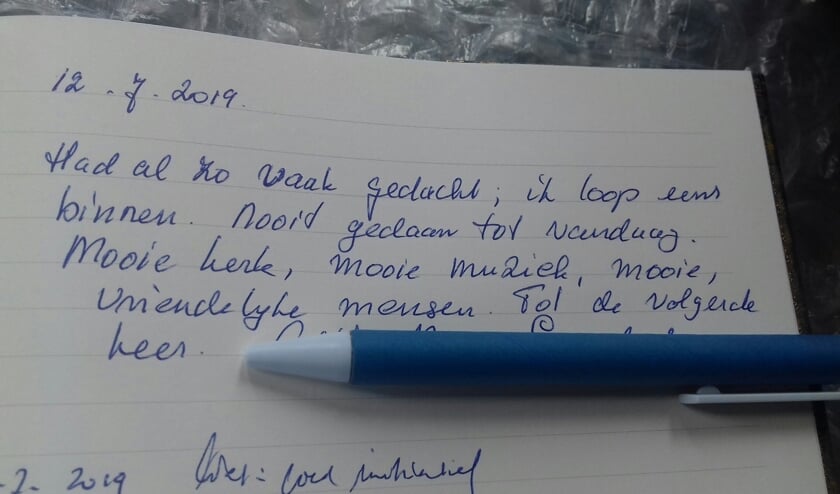 12.7.2019.
Had al zo vaak gedacht; ik loop eens
binnen. Nooit gedaan tot vandaag.
Mooie kerk, mooie muziek, mooie,
vriendelyke mensen. Tot de volgende
keer.
2019